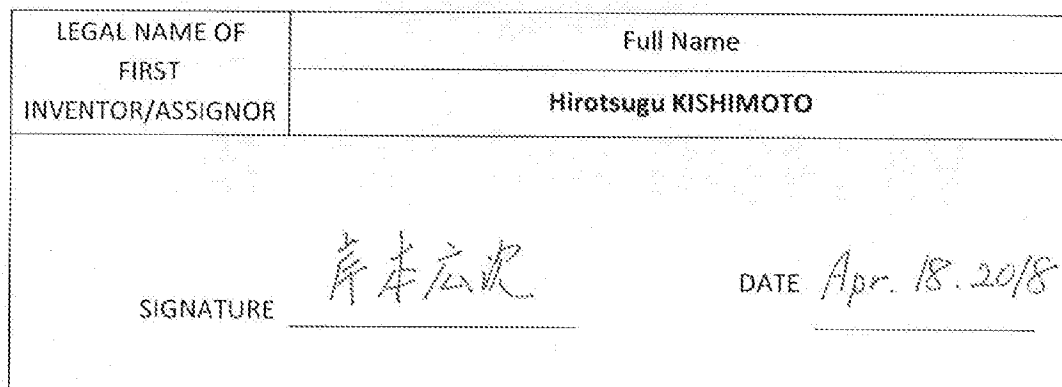 LEGAL NAME OF
FIRST
INVENTOR/ASSIGNOR
Full Name
Hirotsugu KISHIMOTO
SIGNATURE 岸本広次 DATE Apr. 18. 2018